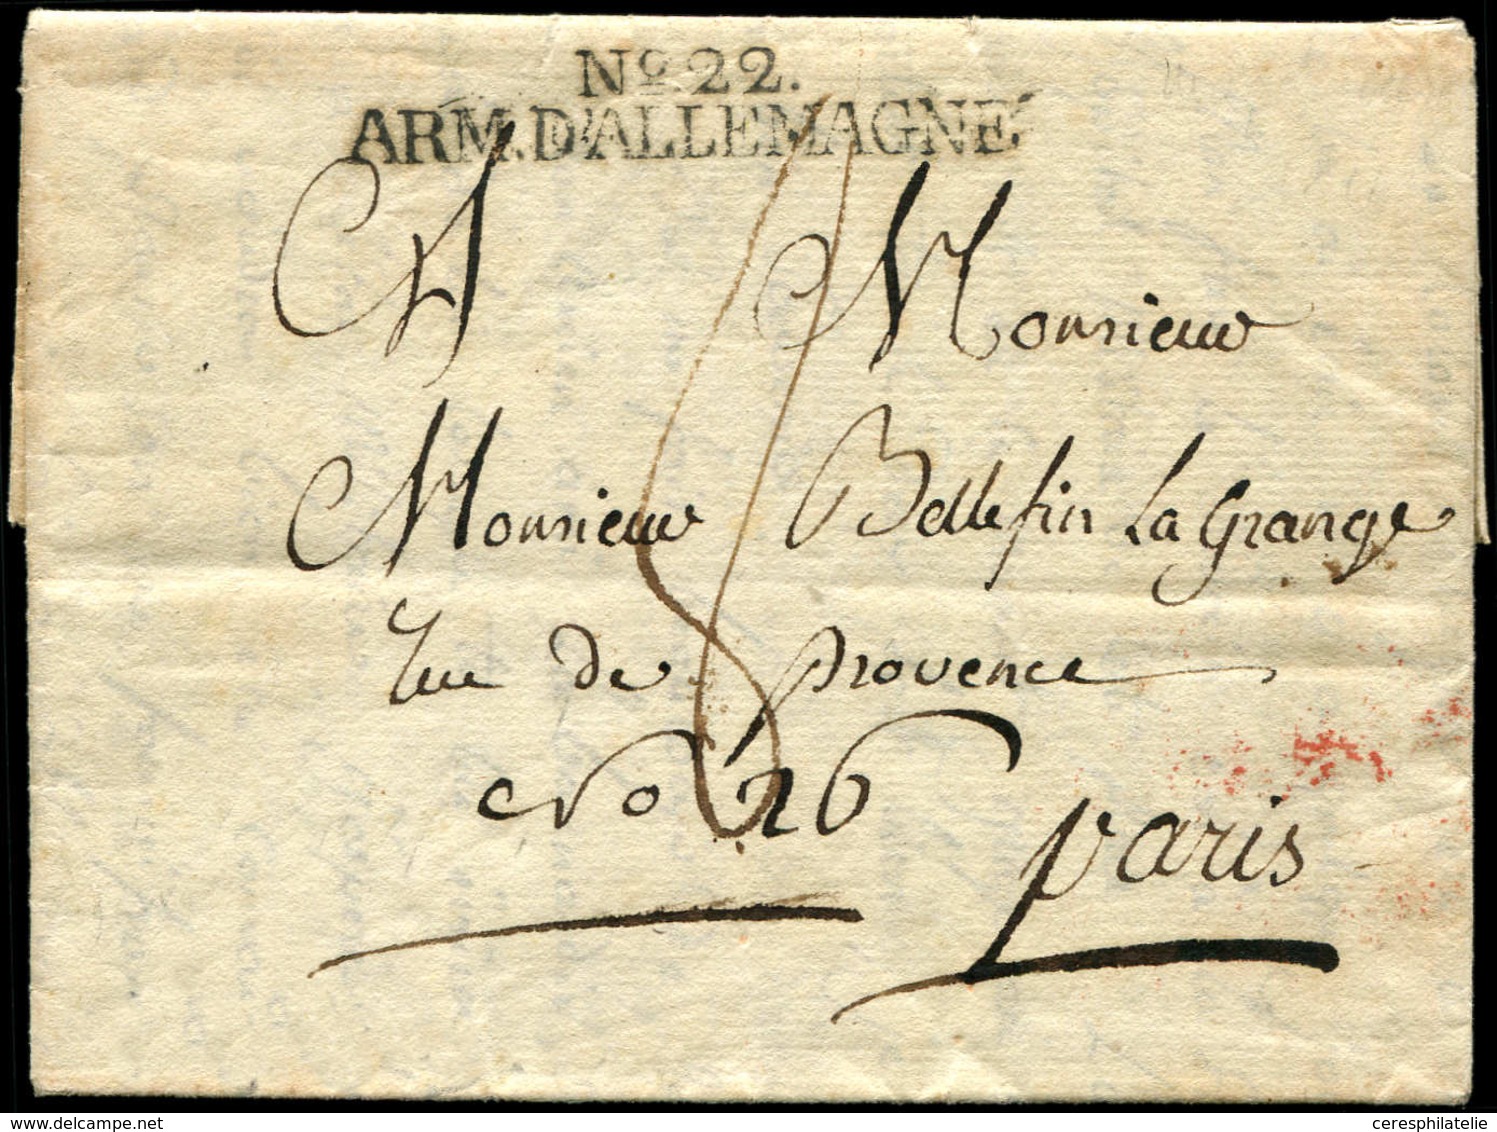 No. 22.
ARM. D'ALLEMAGNE.
A Monsieur
Monsieur Bellefin La Grange
rue de provence
No 26
paris
8
delcampe.net
ceresphilatelie